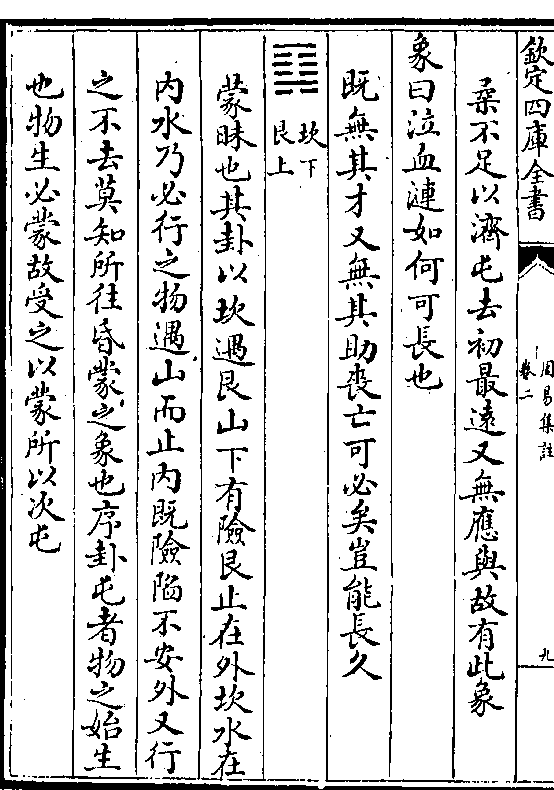 欽定四庫全書
周易集註
卷二
九
柔不足以濟屯去初最遠又無應與故有此象
象曰泣血漣如何可長也
既無其才又無其助喪亡可必矣豈能長久
坎下
艮上
蒙昧也其卦以坎遇艮山下有險艮止在外坎水在
内水乃必行之物遇山而止内既險陷不安外又行
之不去莫知所往昏蒙之象也序卦屯者物之始生
也物生必蒙故受之以蒙所以次屯